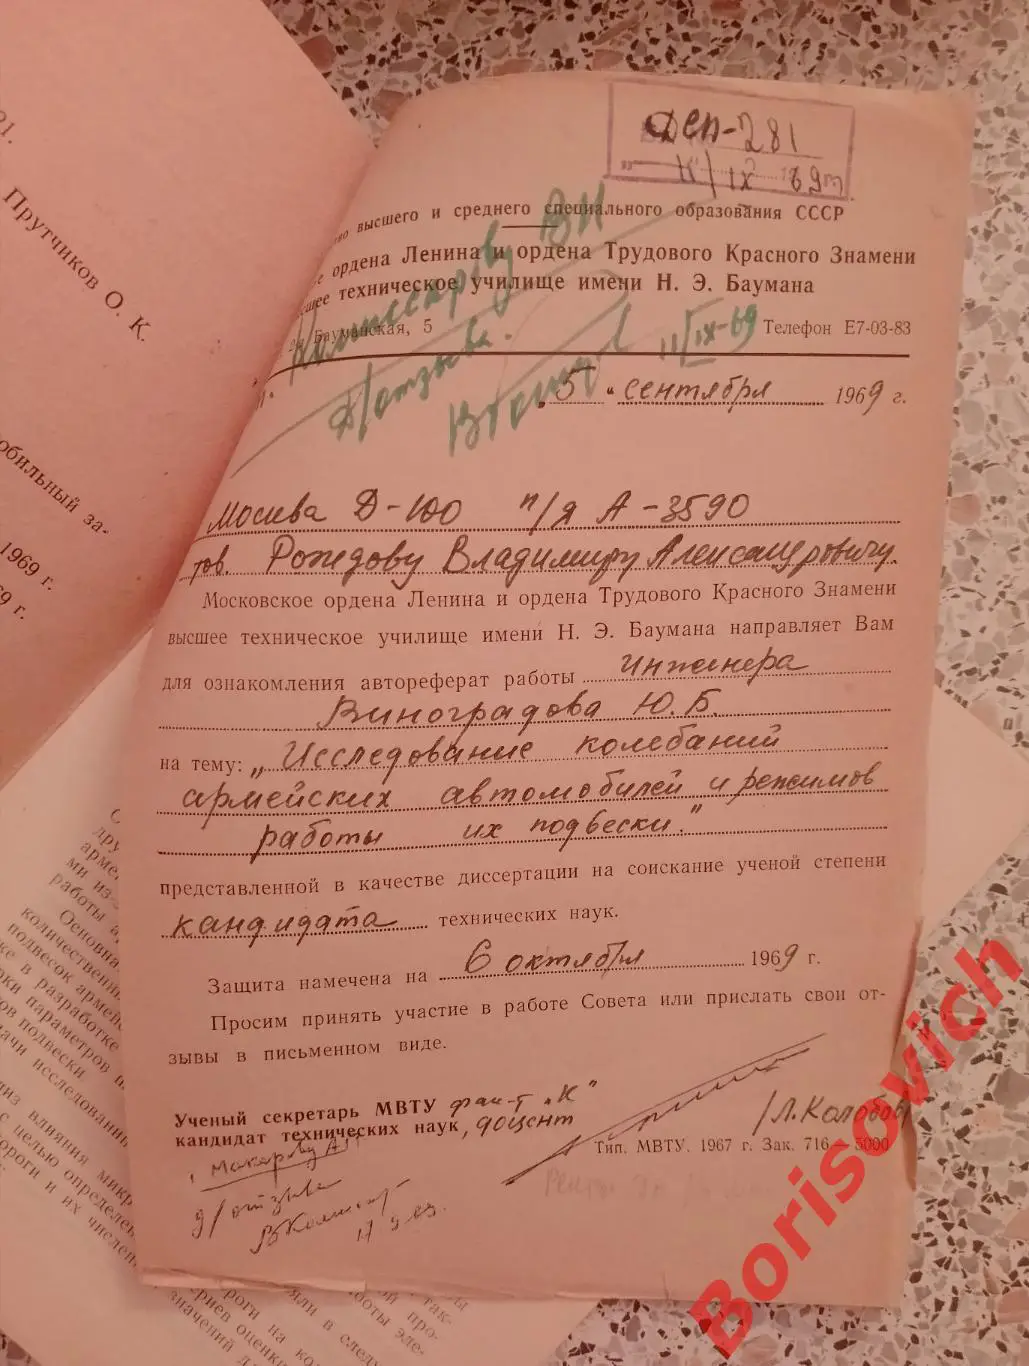 21.
Прутчиков О. К.
обильный за-
1969 г.
9 г.
Деп-281
11/IX 69г
во высшего и среднего специального образования СССР
ое ордена Ленина и ордена Трудового Красного Знамени
шее техническое училище имени Н. Э. Баумана
2я Бауманская, 5
Телефон Е7-03-83
Комиссарову ВН
д/отзыва.
11/IX-69
„5" сентября 1969 г.
Москва Д-100 п/я А-3590
тов. Рождову Владимиру Александровичу.
Московское ордена Ленина и ордена Трудового Красного Знамени
высшее техническое училище имени Н. Э. Баумана направляет Вам
для ознакомления автореферат работы инженера
Виноградова Ю. Б.
на тему: „Исследование колебаний
армейских автомобилей и режимов
работы их подвески."
представленной в качестве диссертации на соискание ученой степени
кандидата технических наук.
Защита намечена на 6 октября 1969 г.
Просим принять участие в работе Совета или прислать свои от-
зывы в письменном виде.
Ученый секретарь МВТУ фак-т „К"
кандидат технических наук, доцент
/Л. Колобов/
Тип. МВТУ. 1967 г. Зак. 716—5000
Макарову
д/отзыва
дру
арме
ми из-
работы а
Основна
количествени
подвесок армей
ке в разработке
рки параметров п
ов подвески
ачи исследовани
лиз влияния микр
с целью определе
ороги и их числен
Borisovich